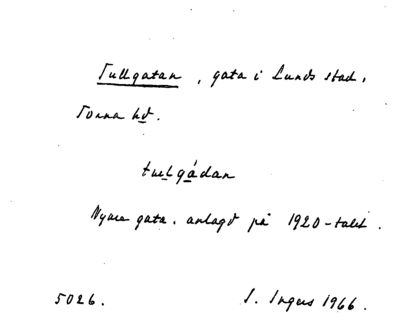 Tullgatan, gata i Lunds stad,
Torna hd.
tulgádan
Nyare gata, anlagd på 1920-talet.
5026. I. Ingers 1966.